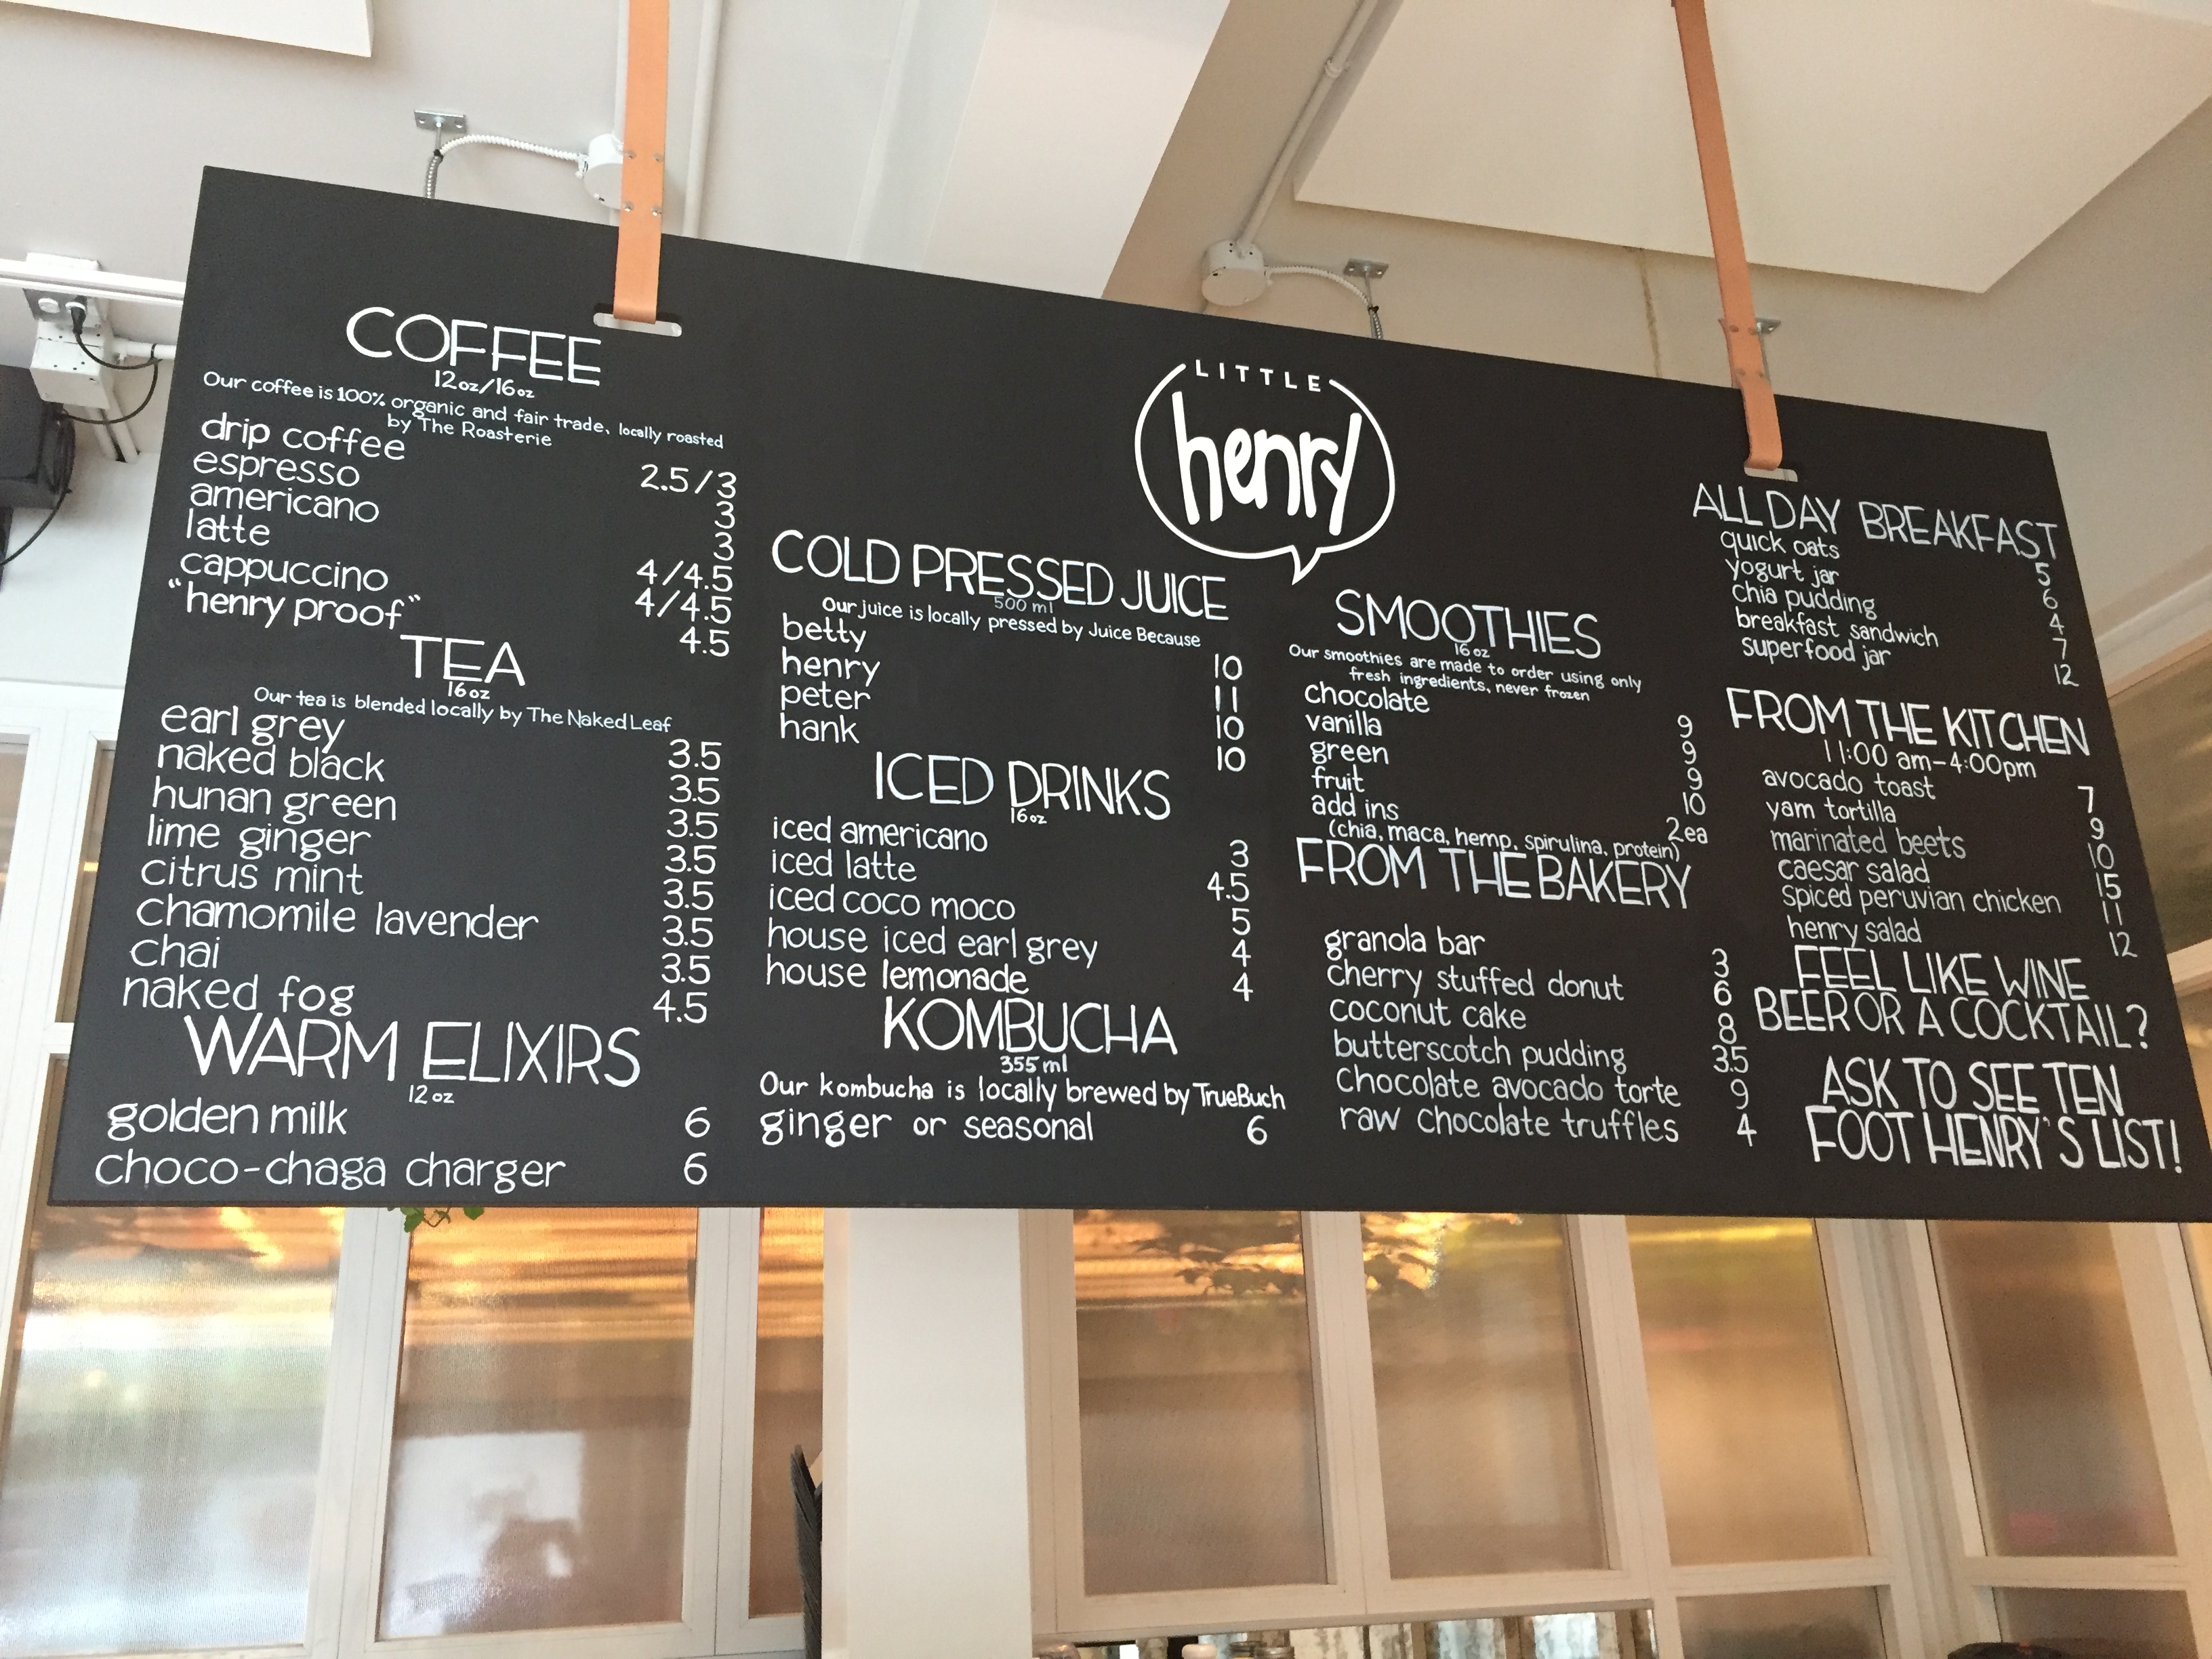 COFFEE
12oz/16oz
Our coffee is 100% organic and fair trade, locally roasted
by The Roasterie
drip coffee 2.5/3
espresso 3
americano 3
latte 4/4.5
cappuccino 4/4.5
"henry proof" 4.5
TEA
16oz
Our tea is blended locally by The Naked Leaf
earl grey 3.5
naked black 3.5
hunan green 3.5
lime ginger 3.5
citrus mint 3.5
chamomile lavender 3.5
chai 3.5
naked fog 4.5
WARM ELIXIRS
12oz
golden milk 6
choco-chaga charger 6
LITTLE
henry
COLD PRESSED JUICE
500 ml
Our juice is locally pressed by Juice Because
betty 10
henry 11
peter 10
hank 10
ICED DRINKS
16oz
iced americano 3
iced latte 4.5
iced coco moco 5
house iced earl grey 4
house lemonade 4
KOMBUCHA
355ml
Our kombucha is locally brewed by TrueBuch
ginger or seasonal 6
SMOOTHIES
16oz
Our smoothies are made to order using only
fresh ingredients, never frozen
chocolate 9
vanilla 9
green 9
fruit 10
add ins 2ea
(chia, maca, hemp, spirulina, protein)
FROM THE BAKERY
granola bar 3
cherry stuffed donut 6
coconut cake 8
butterscotch pudding 3.5
chocolate avocado torte 9
raw chocolate truffles 4
ALL DAY BREAKFAST
quick oats 5
yogurt jar 6
chia pudding 4
breakfast sandwich 7
superfood jar 12
FROM THE KITCHEN
11:00 am-4:00pm
avocado toast 7
yam tortilla 9
marinated beets 10
caesar salad 15
spiced peruvian chicken 11
henry salad 12
FEEL LIKE WINE
BEER OR A COCKTAIL?
ASK TO SEE TEN
FOOT HENRY'S LIST!